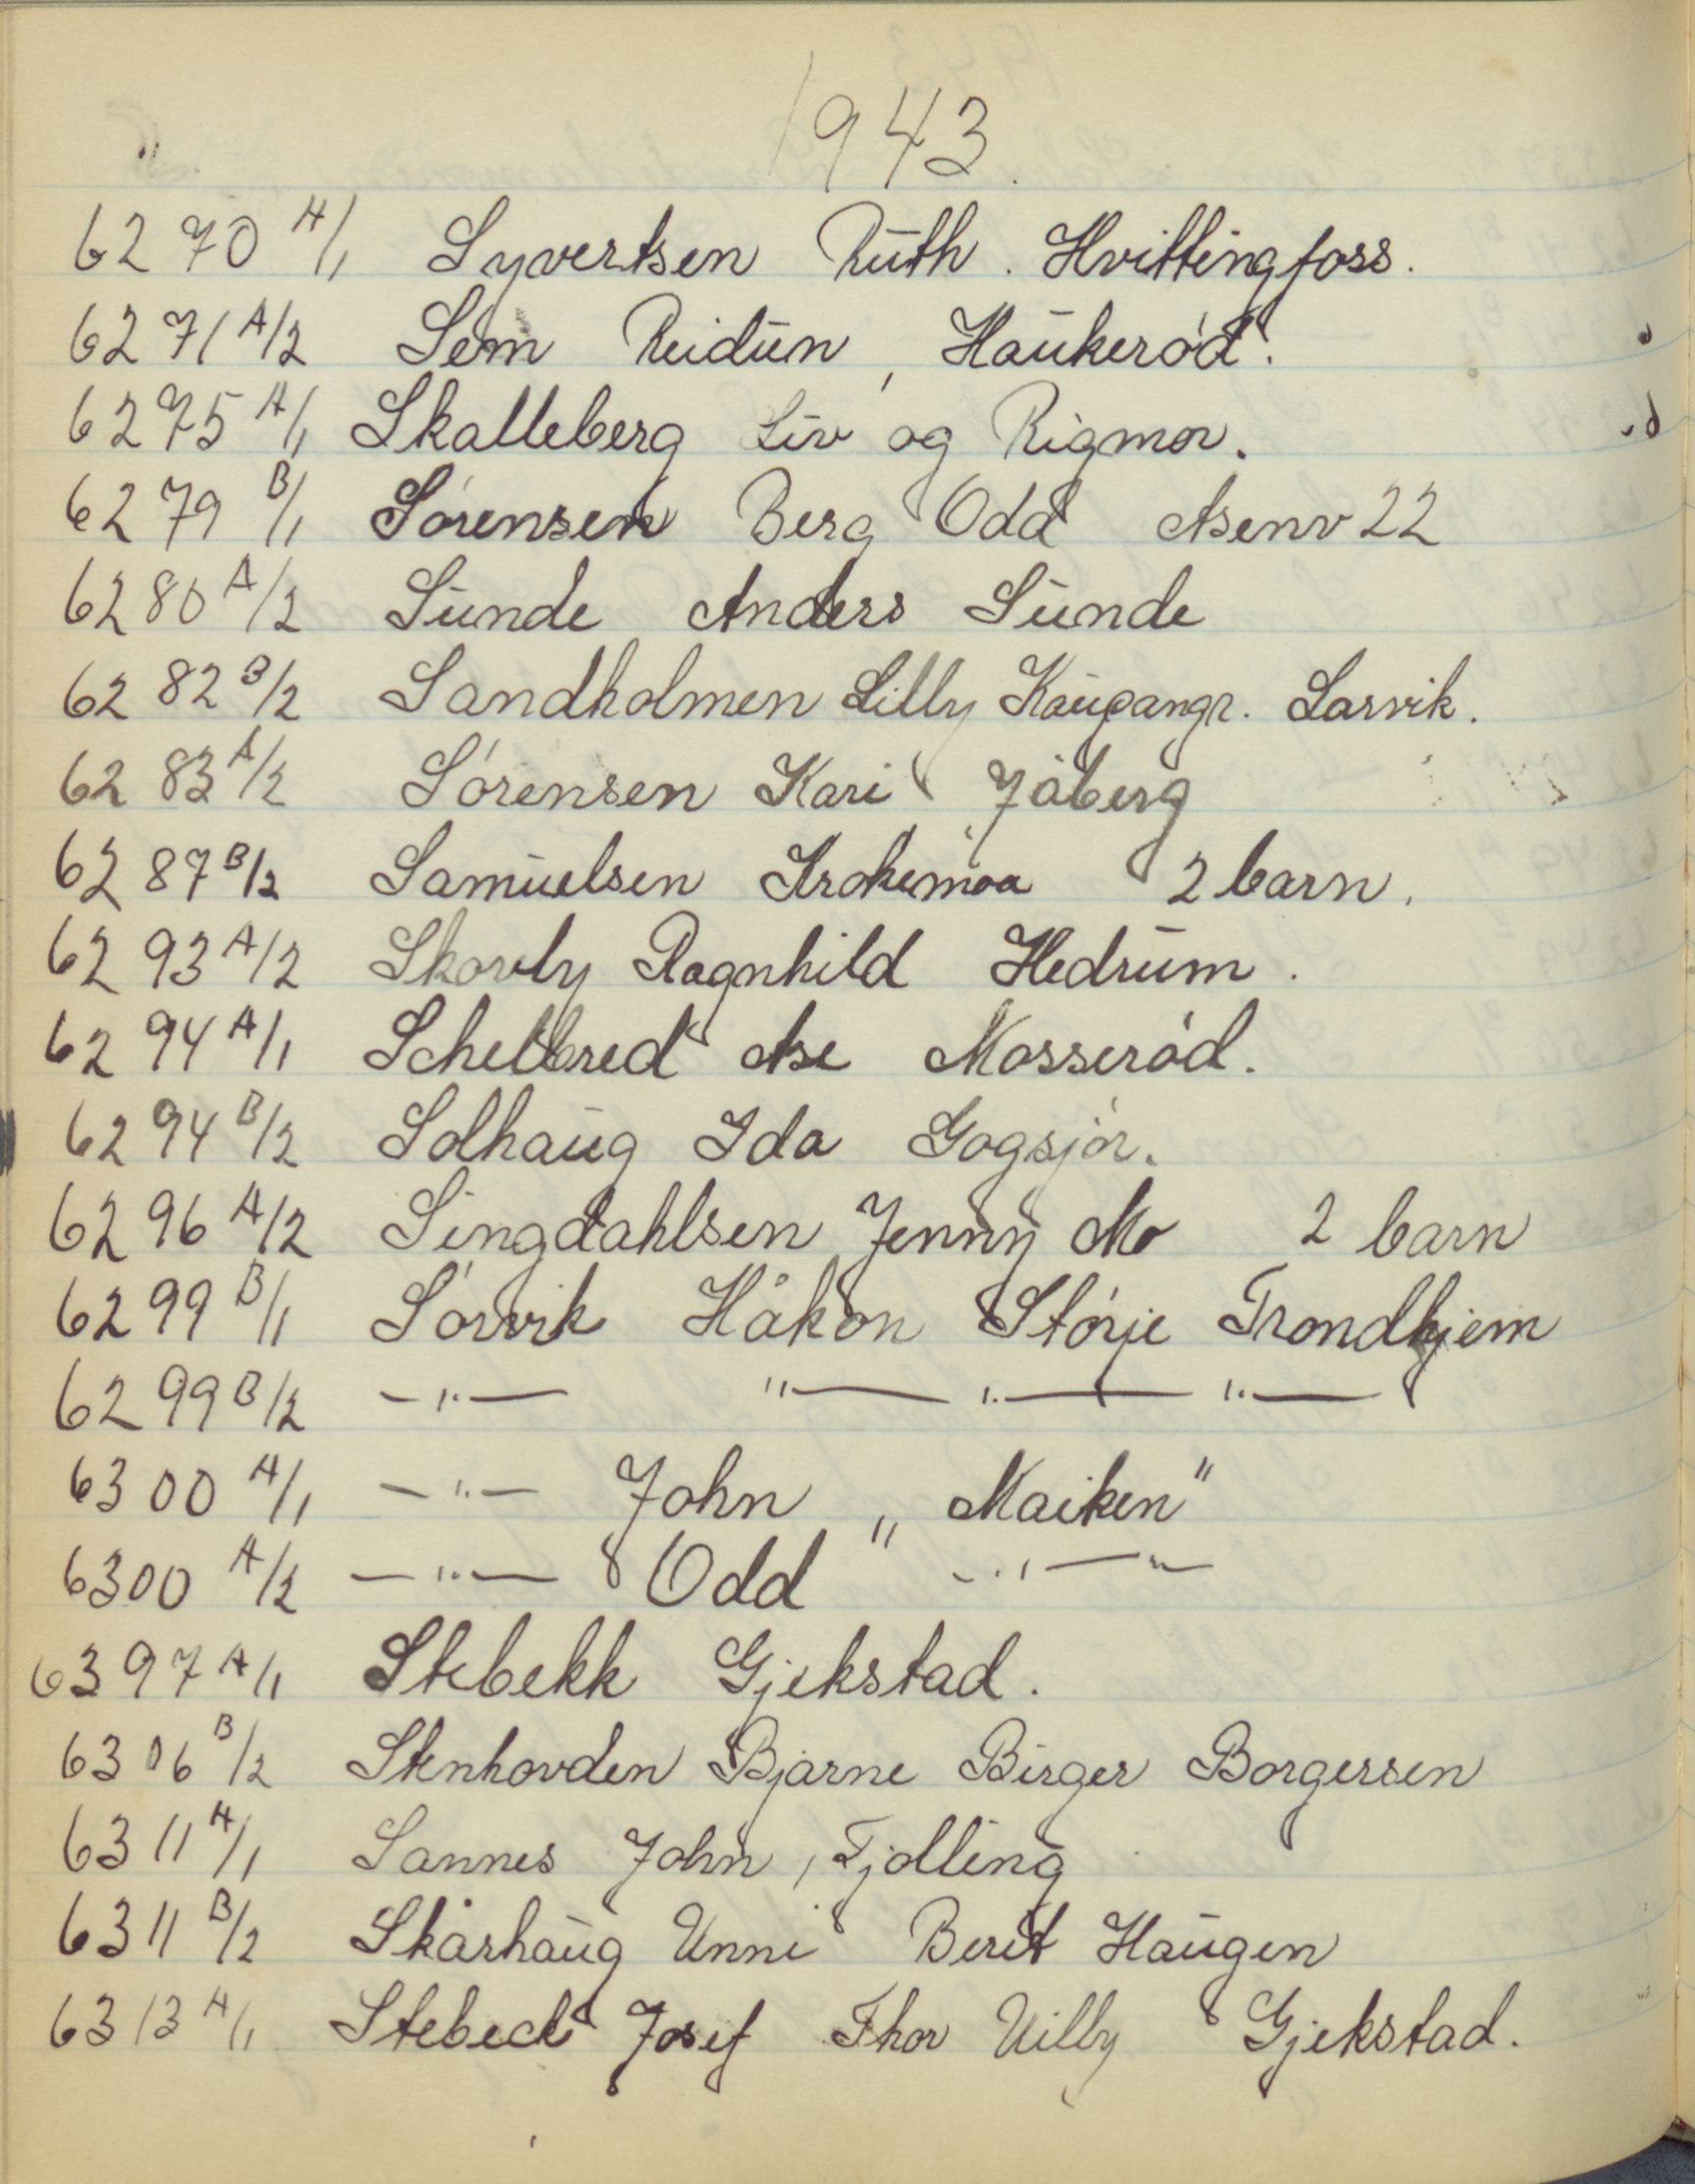 1943.
6270 A/1 Syvertsen Ruth. Hvittingfoss.
6271 A/2 Sem Reidun, Haukerød.
6275 A/1 Skalleberg Liv og Rigmor.
6279 B/1 Sørensen Berg Odd Åsenv 22
6280 A/2 Sunde Anders Sunde
6282 B/2 Sandholmen Lilly Kaupangr. Larvik.
6283 A/2 Sørensen Kari Jåberg
6287 B/2 Samuelsen Krokemoa 2 barn.
6293 A/2 Skovly Ragnhild Hedrum.
6294 A/1 Schelbred Åse Mosserød.
6294 B/2 Solhaug Ida Gogsjør.
6296 A/2 Singdahlsen Jenny Mo 2 barn
6299 B/1 Sørvik Håkon Størje Trondhjem
6299 B/2 —"— "— "— "—
6300 A/1 —"— John „Maiken"
6300 A/2 —"— Odd —"—
6397 A/1 Stebekk Gjekstad.
6306 B/2 Stenhovden Bjarne Birger Borgersen
6311 A/1 Sannes John, Tjølling
6311 B/2 Skårhaug Unni Berit Haugen
6313 A/1 Stebeck Josef Thor Willy Gjekstad.